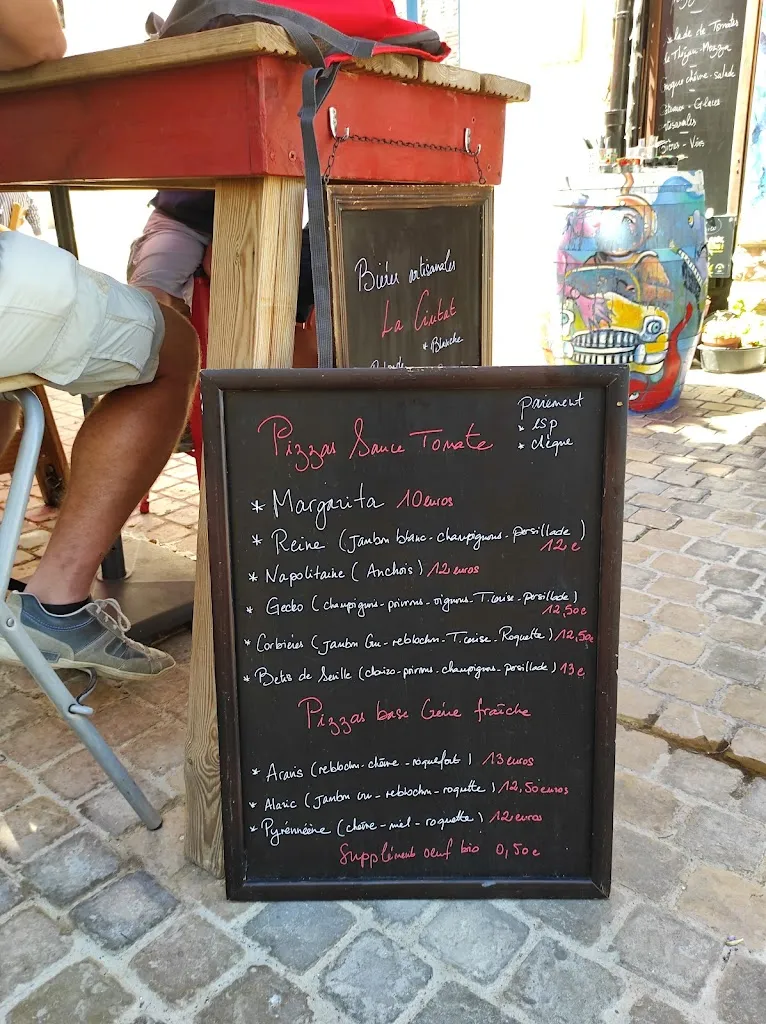 lade de Tomates
Mozza
croque chèvre - salade
Glaces
artisanales
Bières artisanales
La Ciutat
* Blanche
Paiement
* esp
* chèque
Pizzas Sauce Tomate
* Margarita 10 euros
* Reine (jambon blanc - champignons - persillade)
12 €
* Napolitaine (Anchois) 12 euros
* Gecko (champignons - poivrons - oignons - T. cerise - persillade)
12,50€
* Corbières (jambon cru - reblochon - T. cerise - Roquette) 12,50€
* Betis de Séville (chorizo - poivrons - champignons - persillade) 13 €
Pizzas base Crème fraîche
* Aravis (reblochon - chèvre - roquefort) 13 euros
* Alaric (jambon cru - reblochon - roquette) 12,50 euros
* Pyrénnéene (chèvre - miel - roquette) 12 euros
Suppléments oeuf bio 0,50€